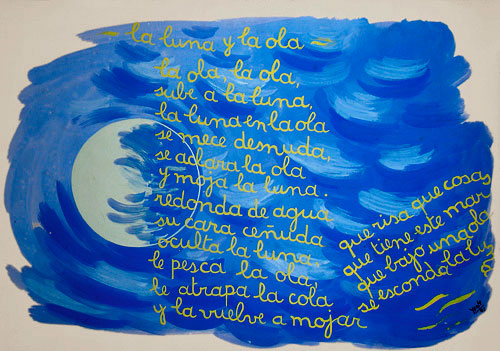 - la luna y la ola -
la ola, la ola,
sube a la luna,
la luna en la ola
se mece desnuda,
se aclara la ola
y moja la luna.
redonda de agua
su cara ceñuda
oculta la luna
le pesca la ola,
le atrapa la cola
y la vuelve a mojar
que risa que cosa,
que tiene este mar
que bajo una ola
se esconda la luz